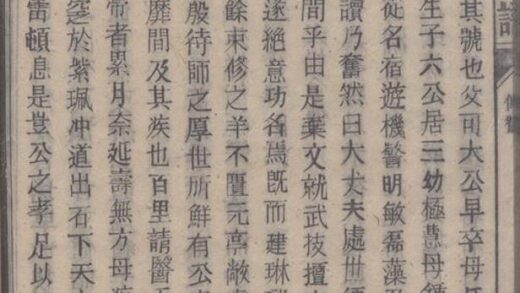 傳贊
其號也父可大公早卒母
生子六公居三幼極慧母鍾
從名宿遊機警明敏磊藻
讀乃奮然曰大丈夫處世
間乎由是棄文就武技擅
遂絕意功名焉既而建琳
餘束修之羊不覆元亭敞
殷待師之厚世所鮮有公
靡間及其疾也百里請醫
帝者累月奈延壽無方母
窆於紫珮冲道出石下天
雷頓息是豈公之孝足以